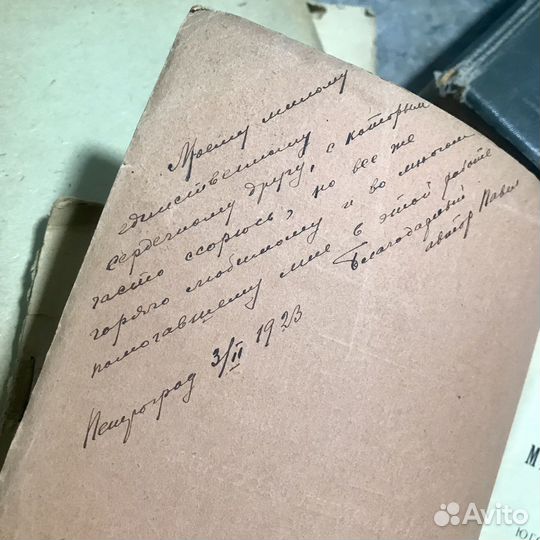 Моему милому
единственному
сердечному другу, с которым
часто ссорюсь, но все же
горячо любимому и во многом
помогавшему мне в этой работе
Благодарный
автор Павел
Петроград 3/II 1923
М
Юго
Avito